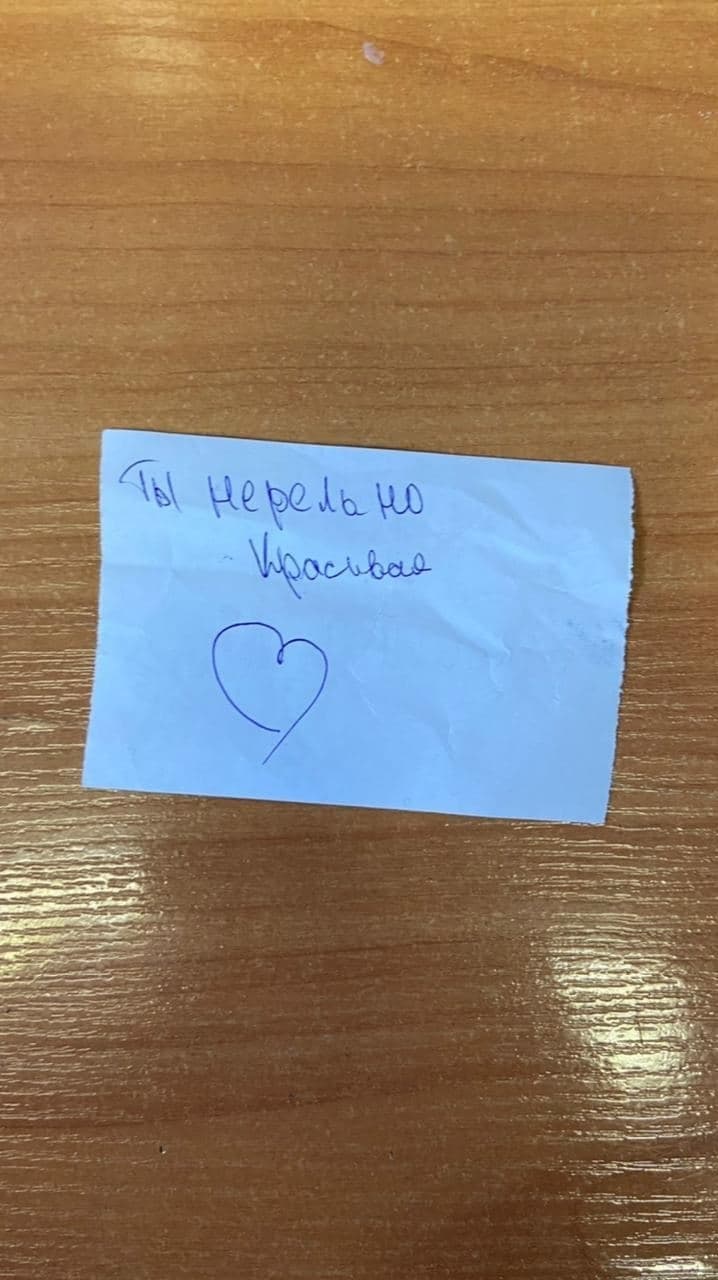 Ты нерельно
красивая